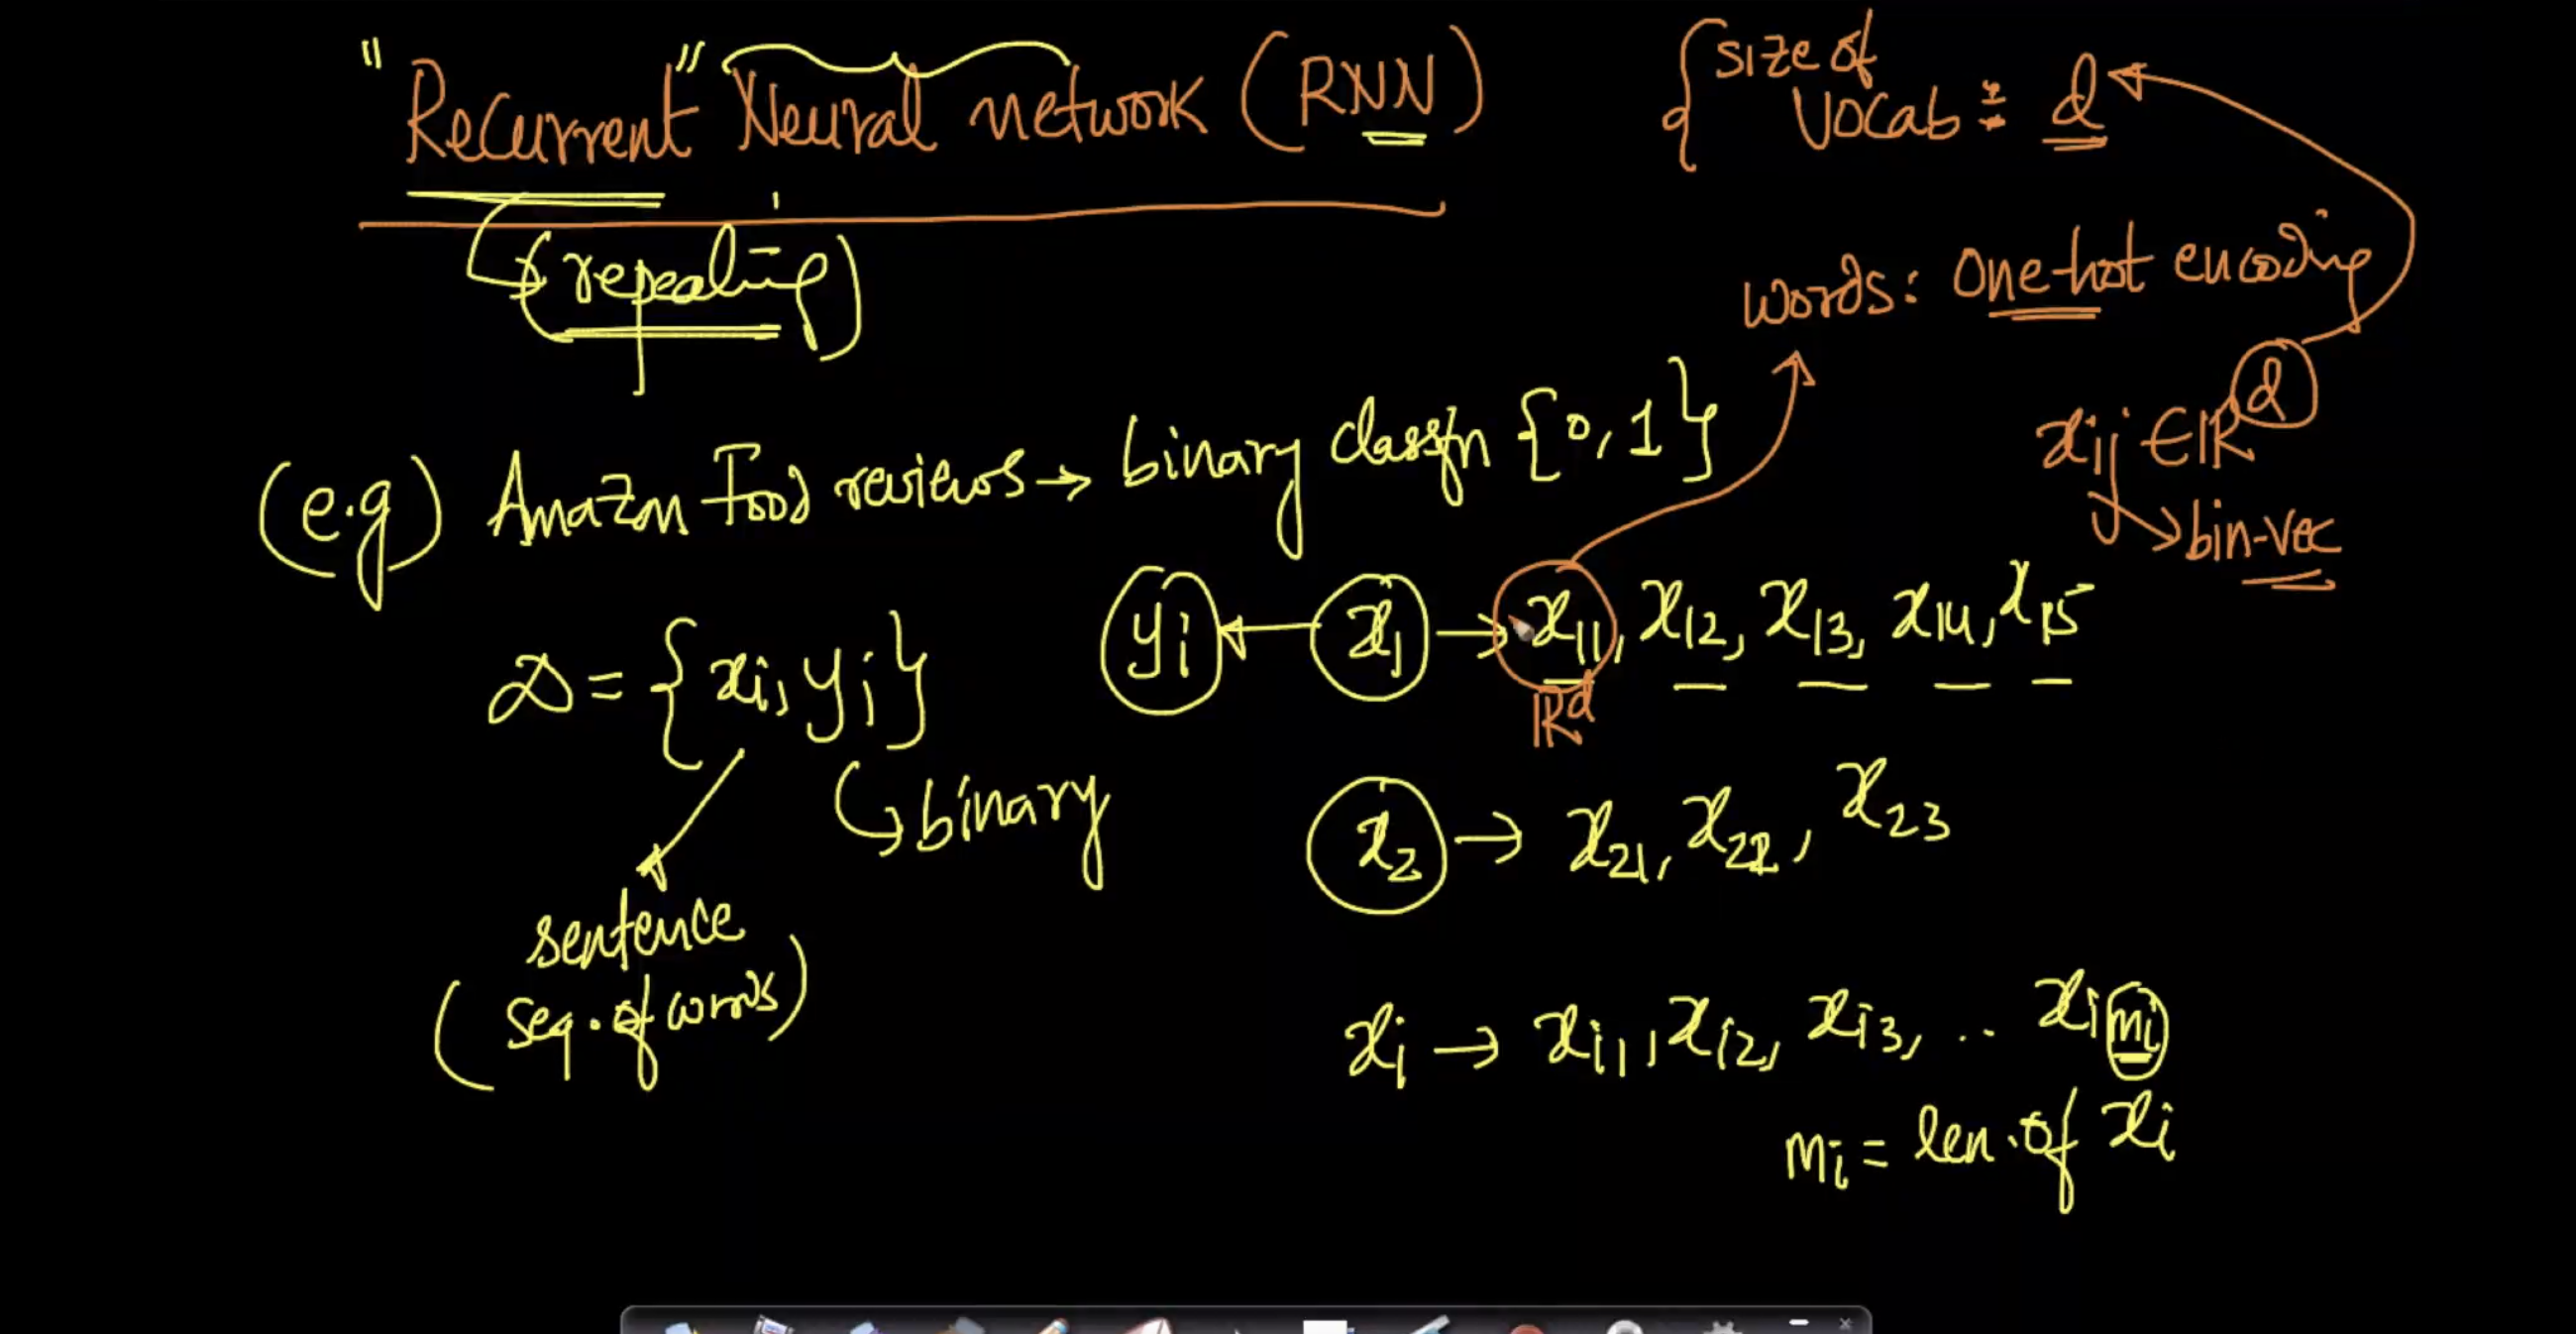 "Recurrent" Neural network (RNN)
(repeating)
{size of
vocab : d
words: one-hot encoding
xij ∈ ℝ^d
→ bin-vec
(e.g) Amazon Food reviews → binary classfn {0, 1}
D = {xi, yi}
binary
sentence
(seq. of words)
yi ← x1 → x11, x12, x13, x14, x15
ℝ^d
x2 → x21, x22, x23
xi → xi1, xi2, xi3, .. ximi
mi = len. of xi